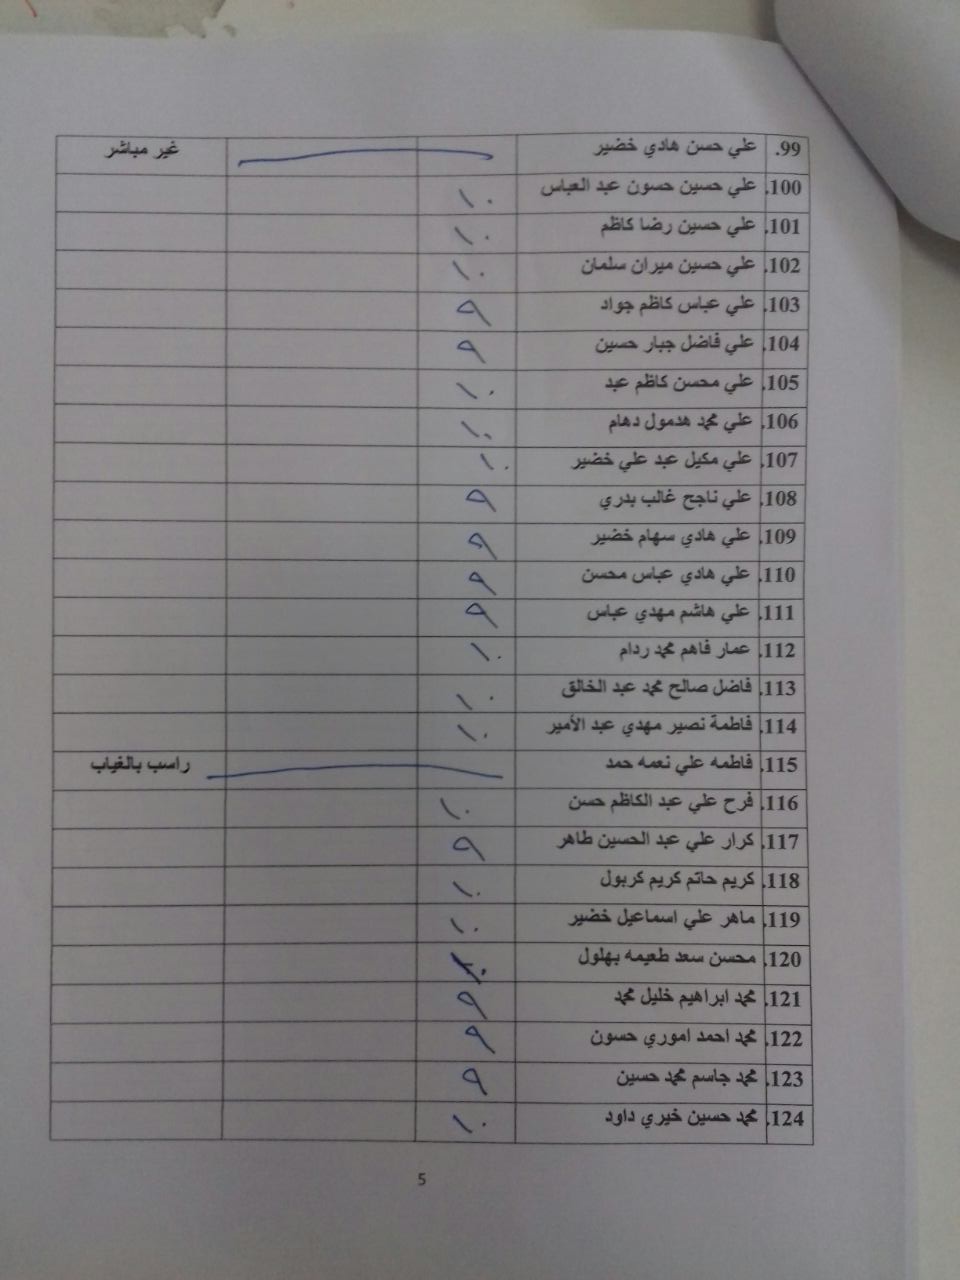 99. علي حسن هادي خضير غير مباشر
100. علي حسين حسون عبد العباس ١٠
101. علي حسين رضا كاظم ١٠
102. علي حسين ميران سلمان ١٠
103. علي عباس كاظم جواد ٩
104. علي فاضل جبار حسين ٩
105. علي محسن كاظم عبد ١٠
106. علي محمد هدمول دهام ١٠
107. علي مكيل عبد علي خضير ١٠
108. علي ناجح غالب بدري ٩
109. علي هادي سهام خضير ٩
110. علي هادي عباس محسن ٩
111. علي هاشم مهدي عباس ٩
112. عمار فاهم محمد ردام ١٠
113. فاضل صالح محمد عبد الخالق ١٠
114. فاطمة نصير مهدي عبد الأمير ١٠
115. فاطمه علي نعمه حمد راسب بالغياب
116. فرح علي عبد الكاظم حسن ١٠
117. كرار علي عبد الحسين طاهر ٩
118. كريم حاتم كريم كربول ١٠
119. ماهر علي اسماعيل خضير ١٠
120. محسن سعد طعيمه بهلول ١٠
121. محمد ابراهيم خليل محمد ٩
122. محمد احمد اموري حسون ٩
123. محمد جاسم محمد حسين ٩
124. محمد حسين خيري داود ١٠
5